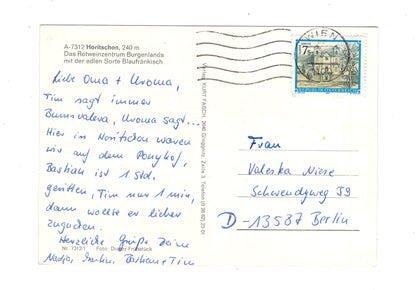 A-7312 Horitschon, 240 m
Das Rotweinzentrum Burgenlands
mit der edlen Sorte Blaufränkisch
Liebe Oma + Uroma,
Tim sagt immer
Uroma sagt...
Hier in Horitschon waren
wir auf dem Ponyhof,
Bastian ist 1 Std.
geritten, Tim nur 1 min,
dann wollte er lieber
zugucken.
Herzliche Grüße Deine
Nadja, Bastian + Tim
Nr. 7312/1 Foto: Dieter Frühstück
Verlag KURT FASCH, 2640 Gloggnitz, Zeile 3, Telefon (0 26 62) 25 01
WIEN
7
REPUBLIK ÖSTERREICH
Frau
Valeska Niese
Schwendyweg 59
D-13587 Berlin